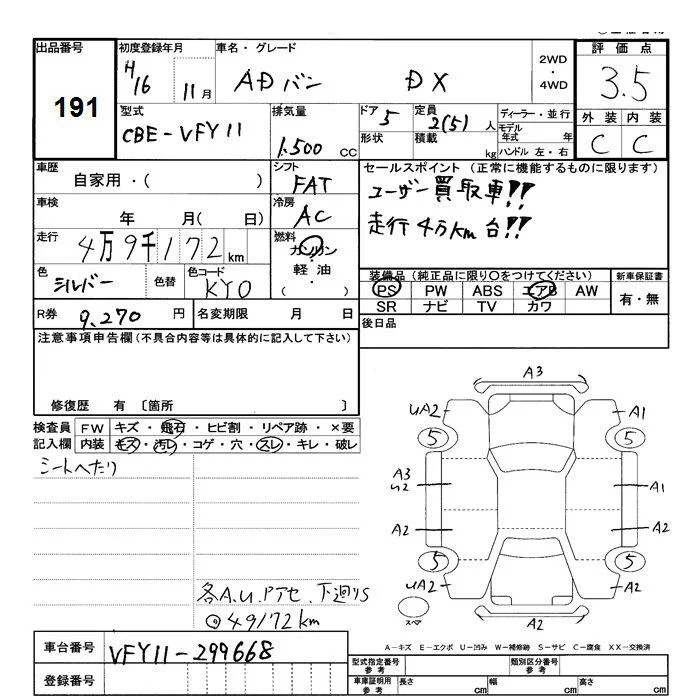 出品番号
191
初度登録年月
H16 11月
車名・グレード
ADバン DX
2WD
・
4WD
評価点
3.5
型式
CBE-VFY11
排気量
1.500 CC
ドア 5
形状
定員 2(5) 人
積載 kg
ディーラー・並行
モデル年式 年
ハンドル 左・右
外装 内装
C C
車歴
自家用・( )
シフト
FAT
セールスポイント (正常に機能するものに限ります)
ユーザー買取車!!
走行4万km台!!
車検
年 月( 日)
冷房
AC
走行
4万9千172km
燃料
ガソリン
・
軽油
・
( )
色
シルバー
色替
色コード
KY0
装備品 (純正品に限り○をつけてください)
PS PW ABS エアB AW
SR ナビ TV カワ
新車保証書
有・無
R券 9,270 円
名変期限 月 日
後日品
注意事項申告欄(不具合内容等は具体的に記入して下さい)
修復歴 有 〔箇所 〕
検査員記入欄
FW キズ・飛石・ヒビ割・リペア跡・×要
内装 キズ・汚レ・コゲ・穴・スレ・キレ・破レ
シートへたり
各A.U.Pアセ、下廻りS
49172km
A3
UA2
A1
5
5
A3
U2
A1
A2
A2
5
5
UA2
A2
A2
スペア
A-キズ E-エクボ U-凹み W-補修跡 S-サビ C-腐食 XX-交換済
車台番号
VFY11-299668
登録番号
型式指定番号
参考
類別区分番号
参考
車庫証明用
参考
長さ cm
幅 cm
高さ cm